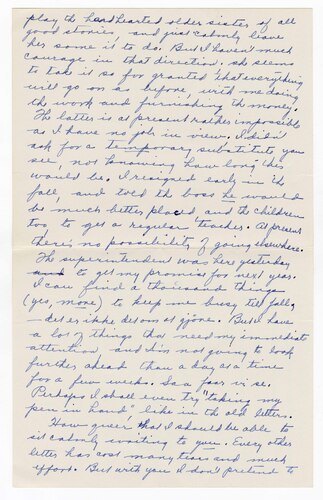 play the hardhearted older sister of all
good stories, and just calmly leave
her some it to do. But I haven't much
courage in that direction. She seems
to take it so for granted that everything
will go on as before, with me doing
the work and furnishing the money.
The latter is at present rather impossible
as I have no job in view. I didn't
ask for a temporary substitute you
see, not knowing how long this
would be. I resigned early in the
fall, and told the boss he would
be much better placed, and the children
too, to get a regular teacher. At present
there's no possibility of going elsewhere.
The superintendent was here yesterday
to get my promise for next year.
I can find a thousand things
(yes, more) to keep me busy till fall,
But I have
a lot of things that need my immediate
attention, and I'm not going to look
further ahead than a day at a time
for a few weeks. So a far vi se.
Perhaps I shall even try "taking my
pen in hand", like in the old letters.
How queer that I should be able to
sit calmly writing to you. Every other
letter has cost many tears and much
effort. But with you I don't pretend to